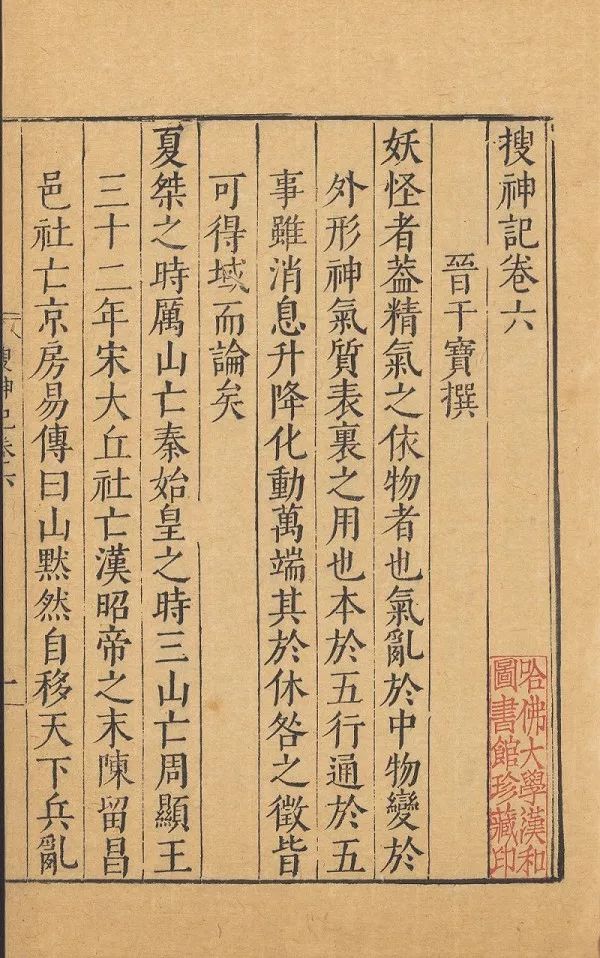 搜神記卷六
晉干寶撰
妖怪者葢精氣之依物者也氣亂於中物變於
外形神氣質表裏之用也本於五行通於五
事雖消息升降化動萬端其於休咎之徵皆
可得域而論矣
夏桀之時厲山亡秦始皇之時三山亡周顯王
三十二年宋大丘社亡漢昭帝之末陳留昌
邑社亡京房易傳曰山黙然自移天下兵亂
搜神記卷六
一
哈佛大學漢和
圖書館珍藏印